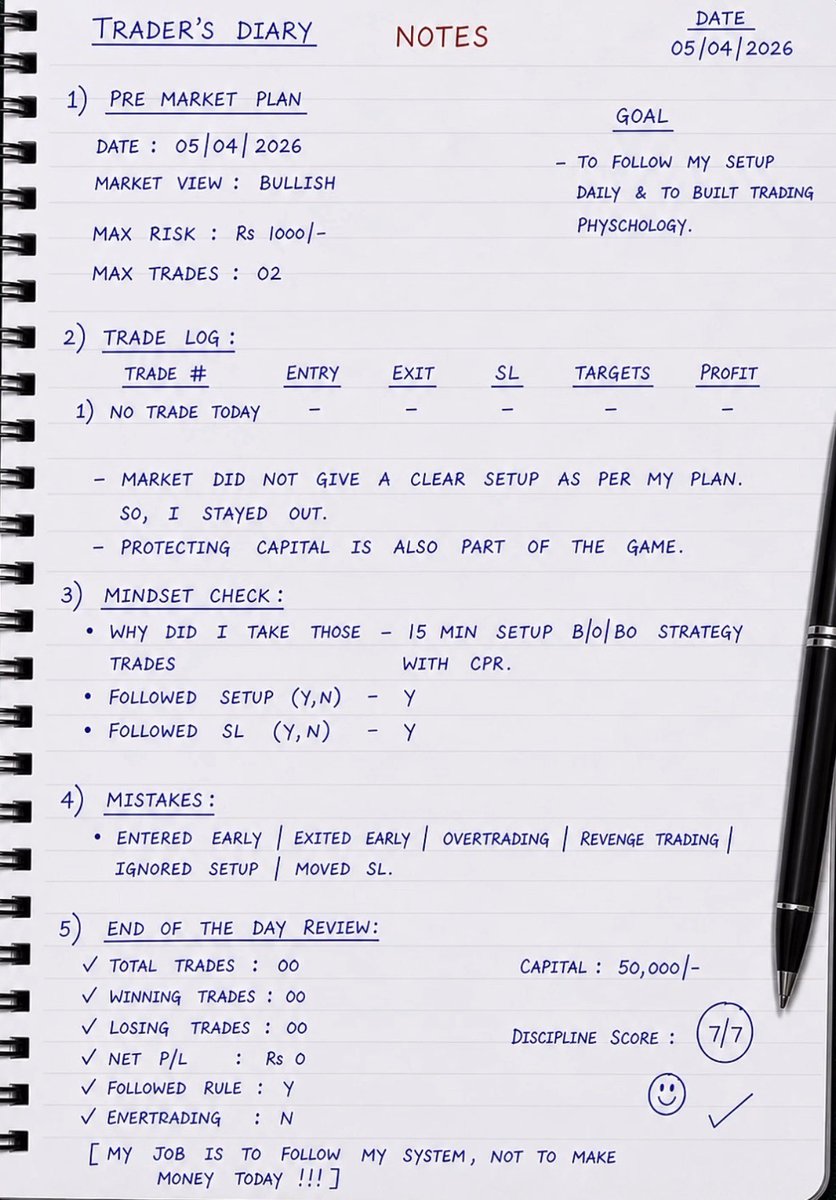 TRADER'S DIARY
NOTES
DATE
05/04/2026
1) PRE MARKET PLAN
DATE : 05/04/2026
MARKET VIEW : BULLISH
MAX RISK : Rs 1000/-
MAX TRADES : 02
GOAL
- TO FOLLOW MY SETUP
DAILY & TO BUILT TRADING
PHYSCHOLOGY.
2) TRADE LOG :
TRADE # ENTRY EXIT SL TARGETS PROFIT
1) NO TRADE TODAY - - - - -
- MARKET DID NOT GIVE A CLEAR SETUP AS PER MY PLAN.
SO, I STAYED OUT.
- PROTECTING CAPITAL IS ALSO PART OF THE GAME.
3) MINDSET CHECK :
• WHY DID I TAKE THOSE - 15 MIN SETUP B/O/BO STRATEGY
TRADES WITH CPR.
• FOLLOWED SETUP (Y,N) - Y
• FOLLOWED SL (Y,N) - Y
4) MISTAKES :
• ENTERED EARLY | EXITED EARLY | OVERTRADING | REVENGE TRADING |
IGNORED SETUP | MOVED SL.
5) END OF THE DAY REVIEW:
✓ TOTAL TRADES : 00
✓ WINNING TRADES : 00
✓ LOSING TRADES : 00
✓ NET P/L : Rs 0
✓ FOLLOWED RULE : Y
✓ ENERTRADING : N
CAPITAL : 50,000/-
DISCIPLINE SCORE : 7/7
[ MY JOB IS TO FOLLOW MY SYSTEM, NOT TO MAKE
MONEY TODAY !!! ]